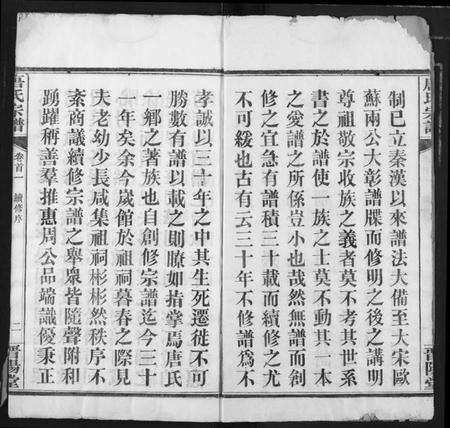 唐氏宗譜
制已立秦漢以來譜法大備至大宋歐
蘇兩公大彰譜牒而修明之後之講明
尊祖敬宗收族之義者莫不考其世系
書之於譜使一族之士莫不動其一本
之愛譜之所係豈小也哉然無譜而創
修之宜急有譜積三十載而續修之尤
不可緩也古有云三十年不修譜爲不
孝誠以三十年之中其生死遷徙不可
勝數有譜以載之則瞭如指掌焉唐氏
一鄉之著族也自創修宗譜迄今三十
一年矣余今歲館於祖祠暮春之際見
夫老幼少長咸集祖祠彬彬然秩序不
紊商議續修宗譜之舉衆皆隨聲附和
踴躍稱善羣推惠周公品端識優秉正
唐氏宗譜
卷首一
續修序
二
晋陽堂
晋陽堂